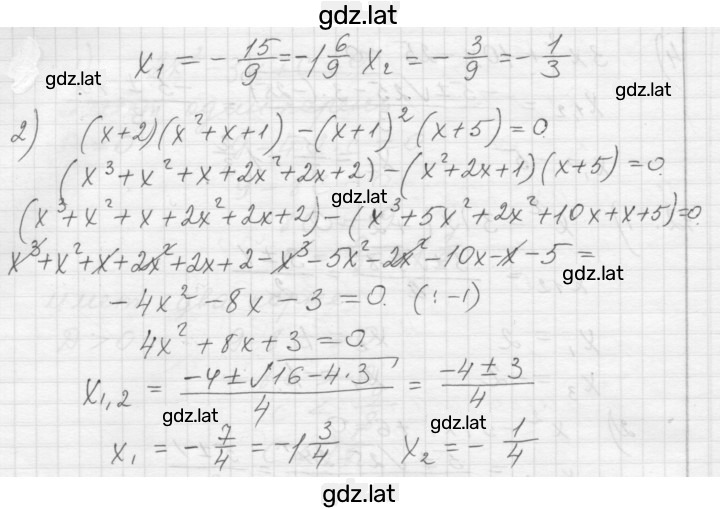 gdz.lat
x₁ = - 15/9 = -1 6/9 x₂ = - 3/9 = - 1/3
gdz.lat
gdz.lat
2) (x+2)(x²+x+1) - (x+1)²(x+5) = 0.
(x³+x²+x+2x²+2x+2) - (x²+2x+1)(x+5) = 0.
gdz.lat
(x³+x²+x+2x²+2x+2) - (x³+5x²+2x²+10x+x+5)=0.
x³+x²+x+2x²+2x+2-x³-5x²-2x²-10x-x-5=
gdz.lat
-4x²-8x-3=0. (:-1)
4x²+8x+3=0.
x₁,₂ = (-4±√(16-4·3))/4 = (-4±3)/4
gdz.lat
gdz.lat
x₁ = - 7/4 = -1 3/4 x₂ = - 1/4
gdz.lat